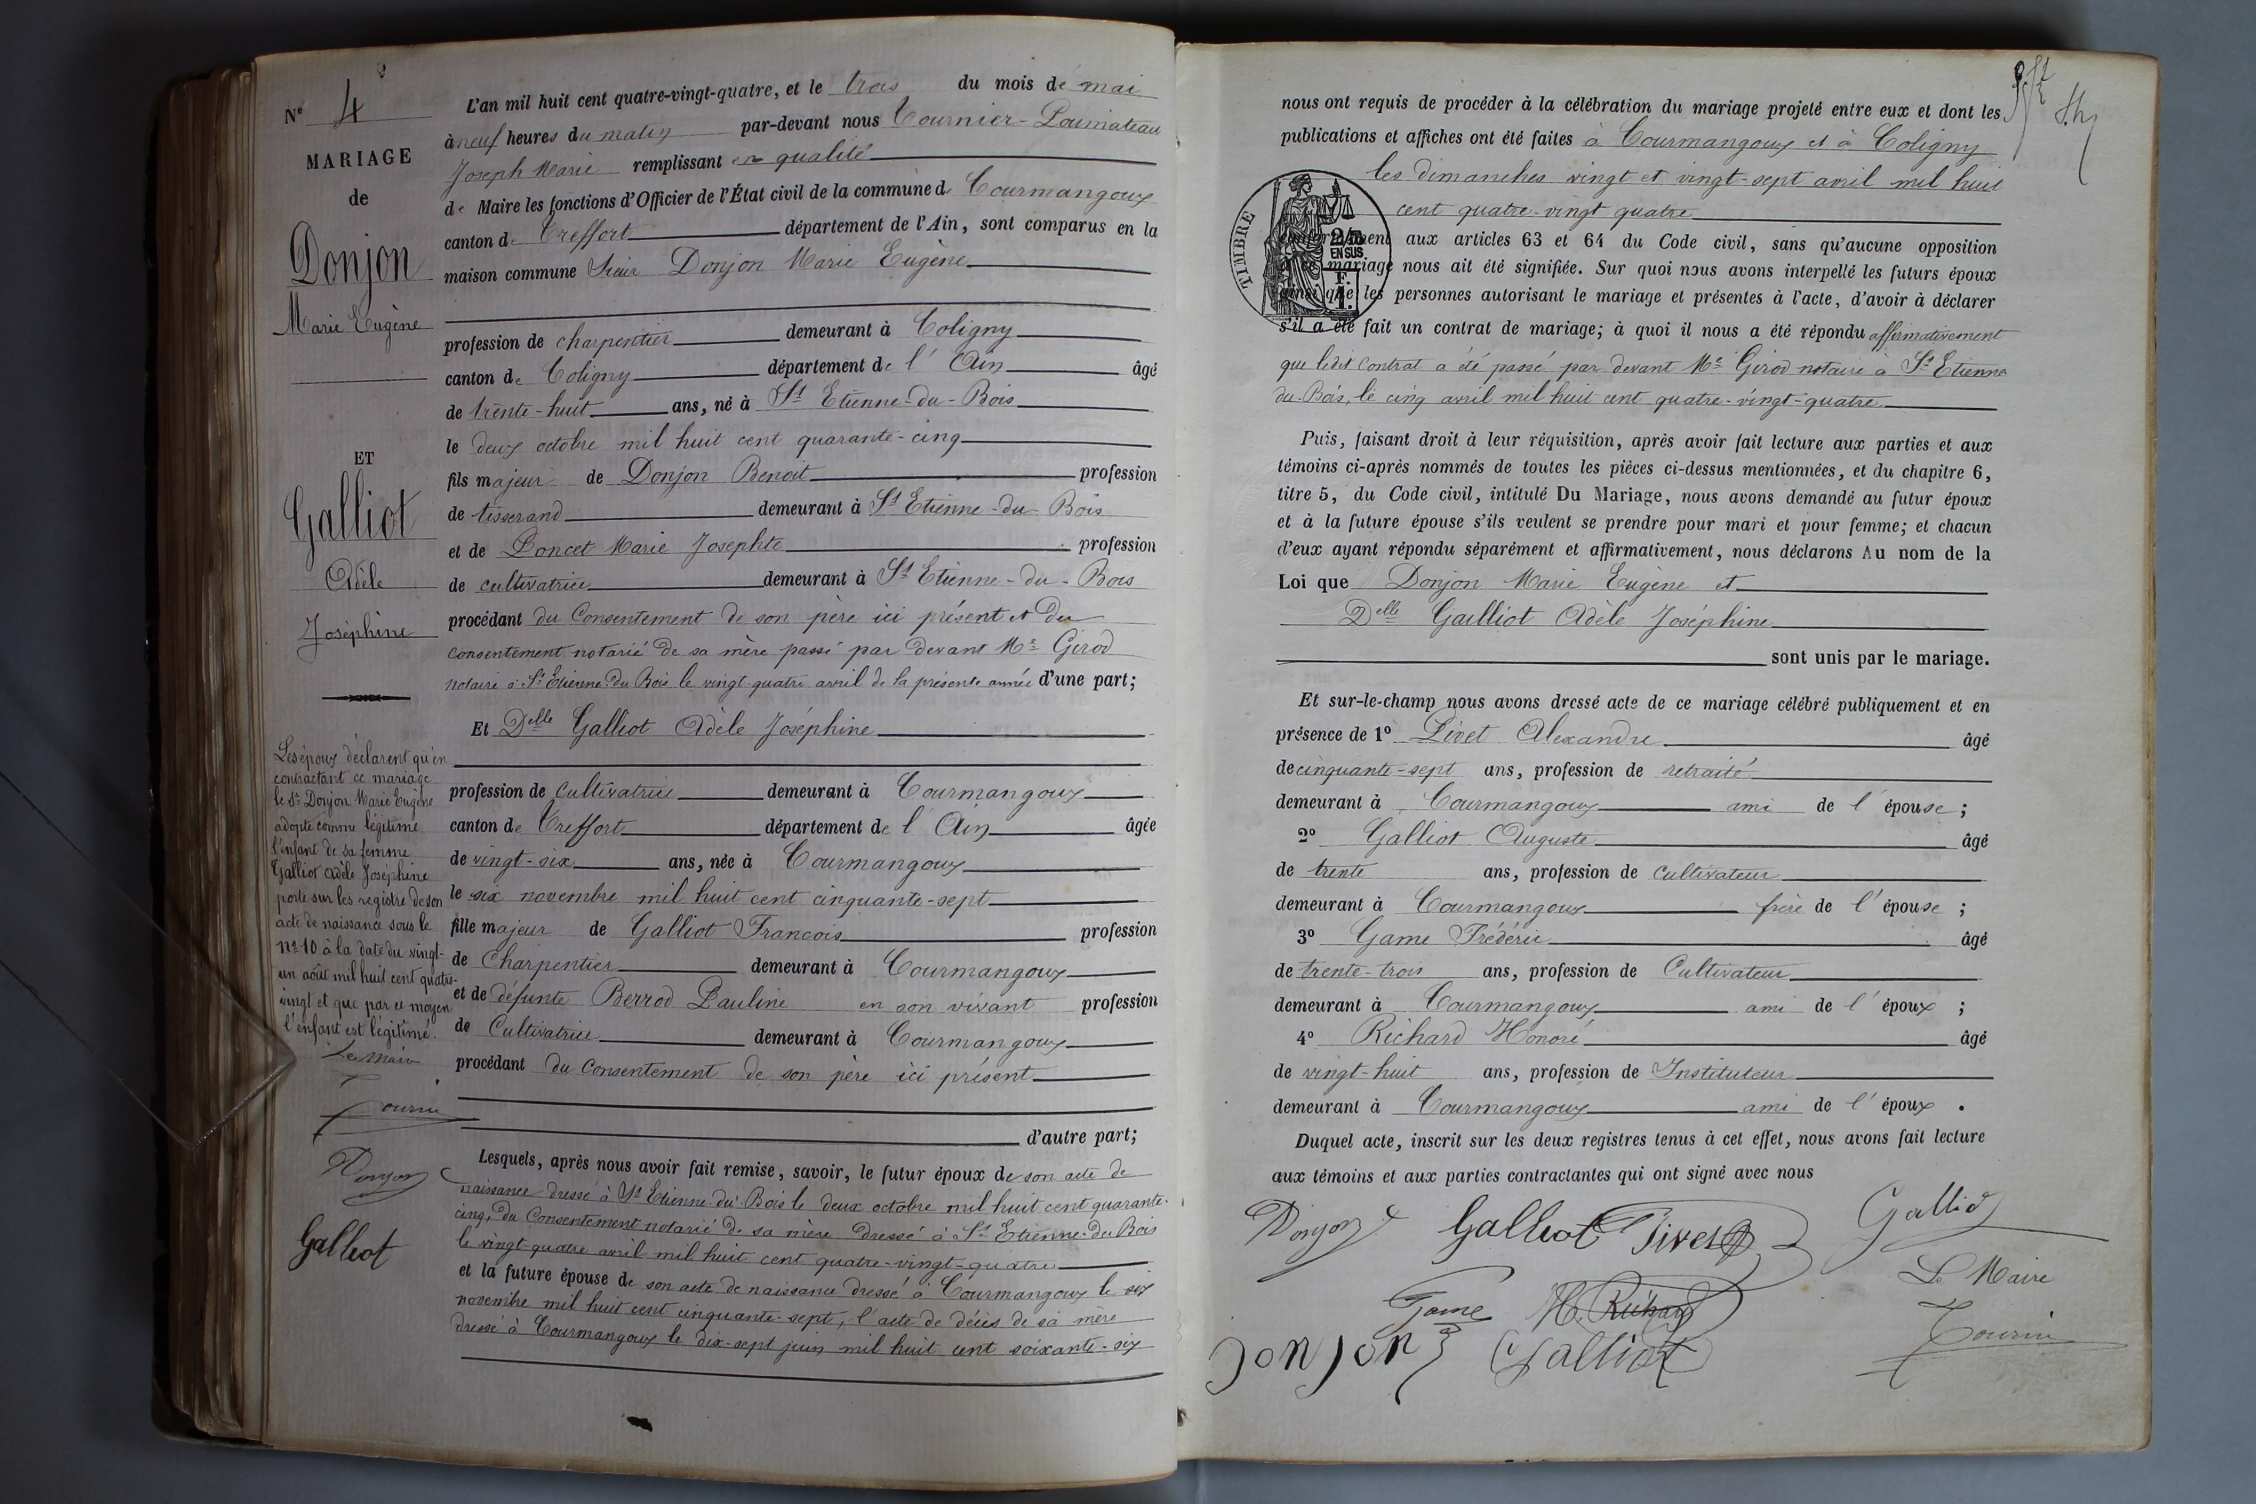 Nº 4
MARIAGE
de
Donjon
Marie Eugène
ET
Galliot
Adèle
Joséphine
Les époux déclarent qu'en
contractant ce mariage
le Sr Donjon Marie Eugène
adopte comme légitime
l'enfant de sa femme
Galliot Adèle Joséphine
porté sur les registre de son
acte de naissance sous le
nº 10 à la date du vingt-
un août mil huit cent quatre-
vingt et que par ce moyen
l'enfant est légitimé.
Le Maire
Donjon
Galliot
L'an mil huit cent quatre-vingt-quatre, et le trois du mois de mai
à neuf heures du matin par-devant nous Tournier-Poumateau
Joseph Marie remplissant en qualité
de Maire les fonctions d'Officier de l'État civil de la commune de Courmangoux
canton de Treffort département de l'Ain, sont comparus en la
maison commune Sieur Donjon Marie Eugène
profession de charpentier demeurant à Coligny
canton de Coligny département de l'Ain âgé
de trente-huit ans, né à St Etienne-du-Bois
le deux octobre mil huit cent quarante-cinq
fils majeur de Donjon Benoit profession
de tisserand demeurant à St Etienne-du-Bois
et de Poncet Marie Josephte profession
de cultivatrice demeurant à St Etienne-du-Bois
procédant du Consentement de son père ici présent et du
consentement notarié de sa mère passé par devant Me Girod
notaire à St Etienne du Bois le vingt-quatre avril de la présente année d'une part;
Et Delle Galliot Adèle Joséphine
profession de Cultivatrice demeurant à Courmangoux
canton de Treffort département de l'Ain âgée
de vingt-six ans, née à Courmangoux
le six novembre mil huit cent cinquante-sept
fille majeur de Galliot François profession
de Charpentier demeurant à Courmangoux
et de défunte Berrod Pauline en son vivant profession
de Cultivatrice demeurant à Courmangoux
procédant du Consentement de son père ici présent
d'autre part;
Lesquels, après nous avoir fait remise, savoir, le futur époux de son acte de
naissance dressé à St Etienne du Bois le deux octobre mil huit cent quarante-
cinq, du Consentement notarié de sa mère dressé à St Etienne-du-Bois
le vingt-quatre avril mil huit cent quatre-vingt-quatre
et la future épouse de son acte de naissance dressé à Courmangoux le six
novembre mil huit cent cinquante-sept, l'acte de décès de sa mère
dressé à Courmangoux le dix-sept juin mil huit cent soixante-six
nous ont requis de procéder à la célébration du mariage projeté entre eux et dont les
publications et affiches ont été faites à Courmangoux et à Coligny
les dimanches vingt et vingt-sept avril mil huit
cent quatre-vingt quatre
TIMBRE
2/10
EN SUS.
conformément aux articles 63 et 64 du Code civil, sans qu'aucune opposition
à ce mariage nous ait été signifiée. Sur quoi nous avons interpellé les futurs époux
ainsi que les personnes autorisant le mariage et présentes à l'acte, d'avoir à déclarer
s'il a été fait un contrat de mariage; à quoi il nous a été répondu affirmativement
que ledit Contrat a été passé par devant Me Girod notaire à St Etienne
du-Bois, le cinq avril mil huit cent quatre-vingt-quatre
Puis, faisant droit à leur réquisition, après avoir fait lecture aux parties et aux
témoins ci-après nommés de toutes les pièces ci-dessus mentionnées, et du chapitre 6,
titre 5, du Code civil, intitulé Du Mariage, nous avons demandé au futur époux
et à la future épouse s'ils veulent se prendre pour mari et pour femme; et chacun
d'eux ayant répondu séparément et affirmativement, nous déclarons Au nom de la
Loi que Donjon Marie Eugène et
Delle Galliot Adèle Joséphine
sont unis par le mariage.
Et sur-le-champ nous avons dressé acte de ce mariage célébré publiquement et en
présence de 1º Livet Alexandre âgé
de cinquante-sept ans, profession de retraité
demeurant à Courmangoux ami de l'épouse;
2º Galliot Auguste âgé
de trente ans, profession de Cultivateur
demeurant à Courmangoux frère de l'épouse;
3º Game Frédéric âgé
de trente-trois ans, profession de Cultivateur
demeurant à Courmangoux ami de l'époux;
4º Richard Honoré âgé
de vingt-huit ans, profession de Instituteur
demeurant à Courmangoux ami de l'époux.
Duquel acte, inscrit sur les deux registres tenus à cet effet, nous avons fait lecture
aux témoins et aux parties contractantes qui ont signé avec nous
Donjon Galliot Livet Galliot
Le Maire
Game H. Richard
Donjon Galliot